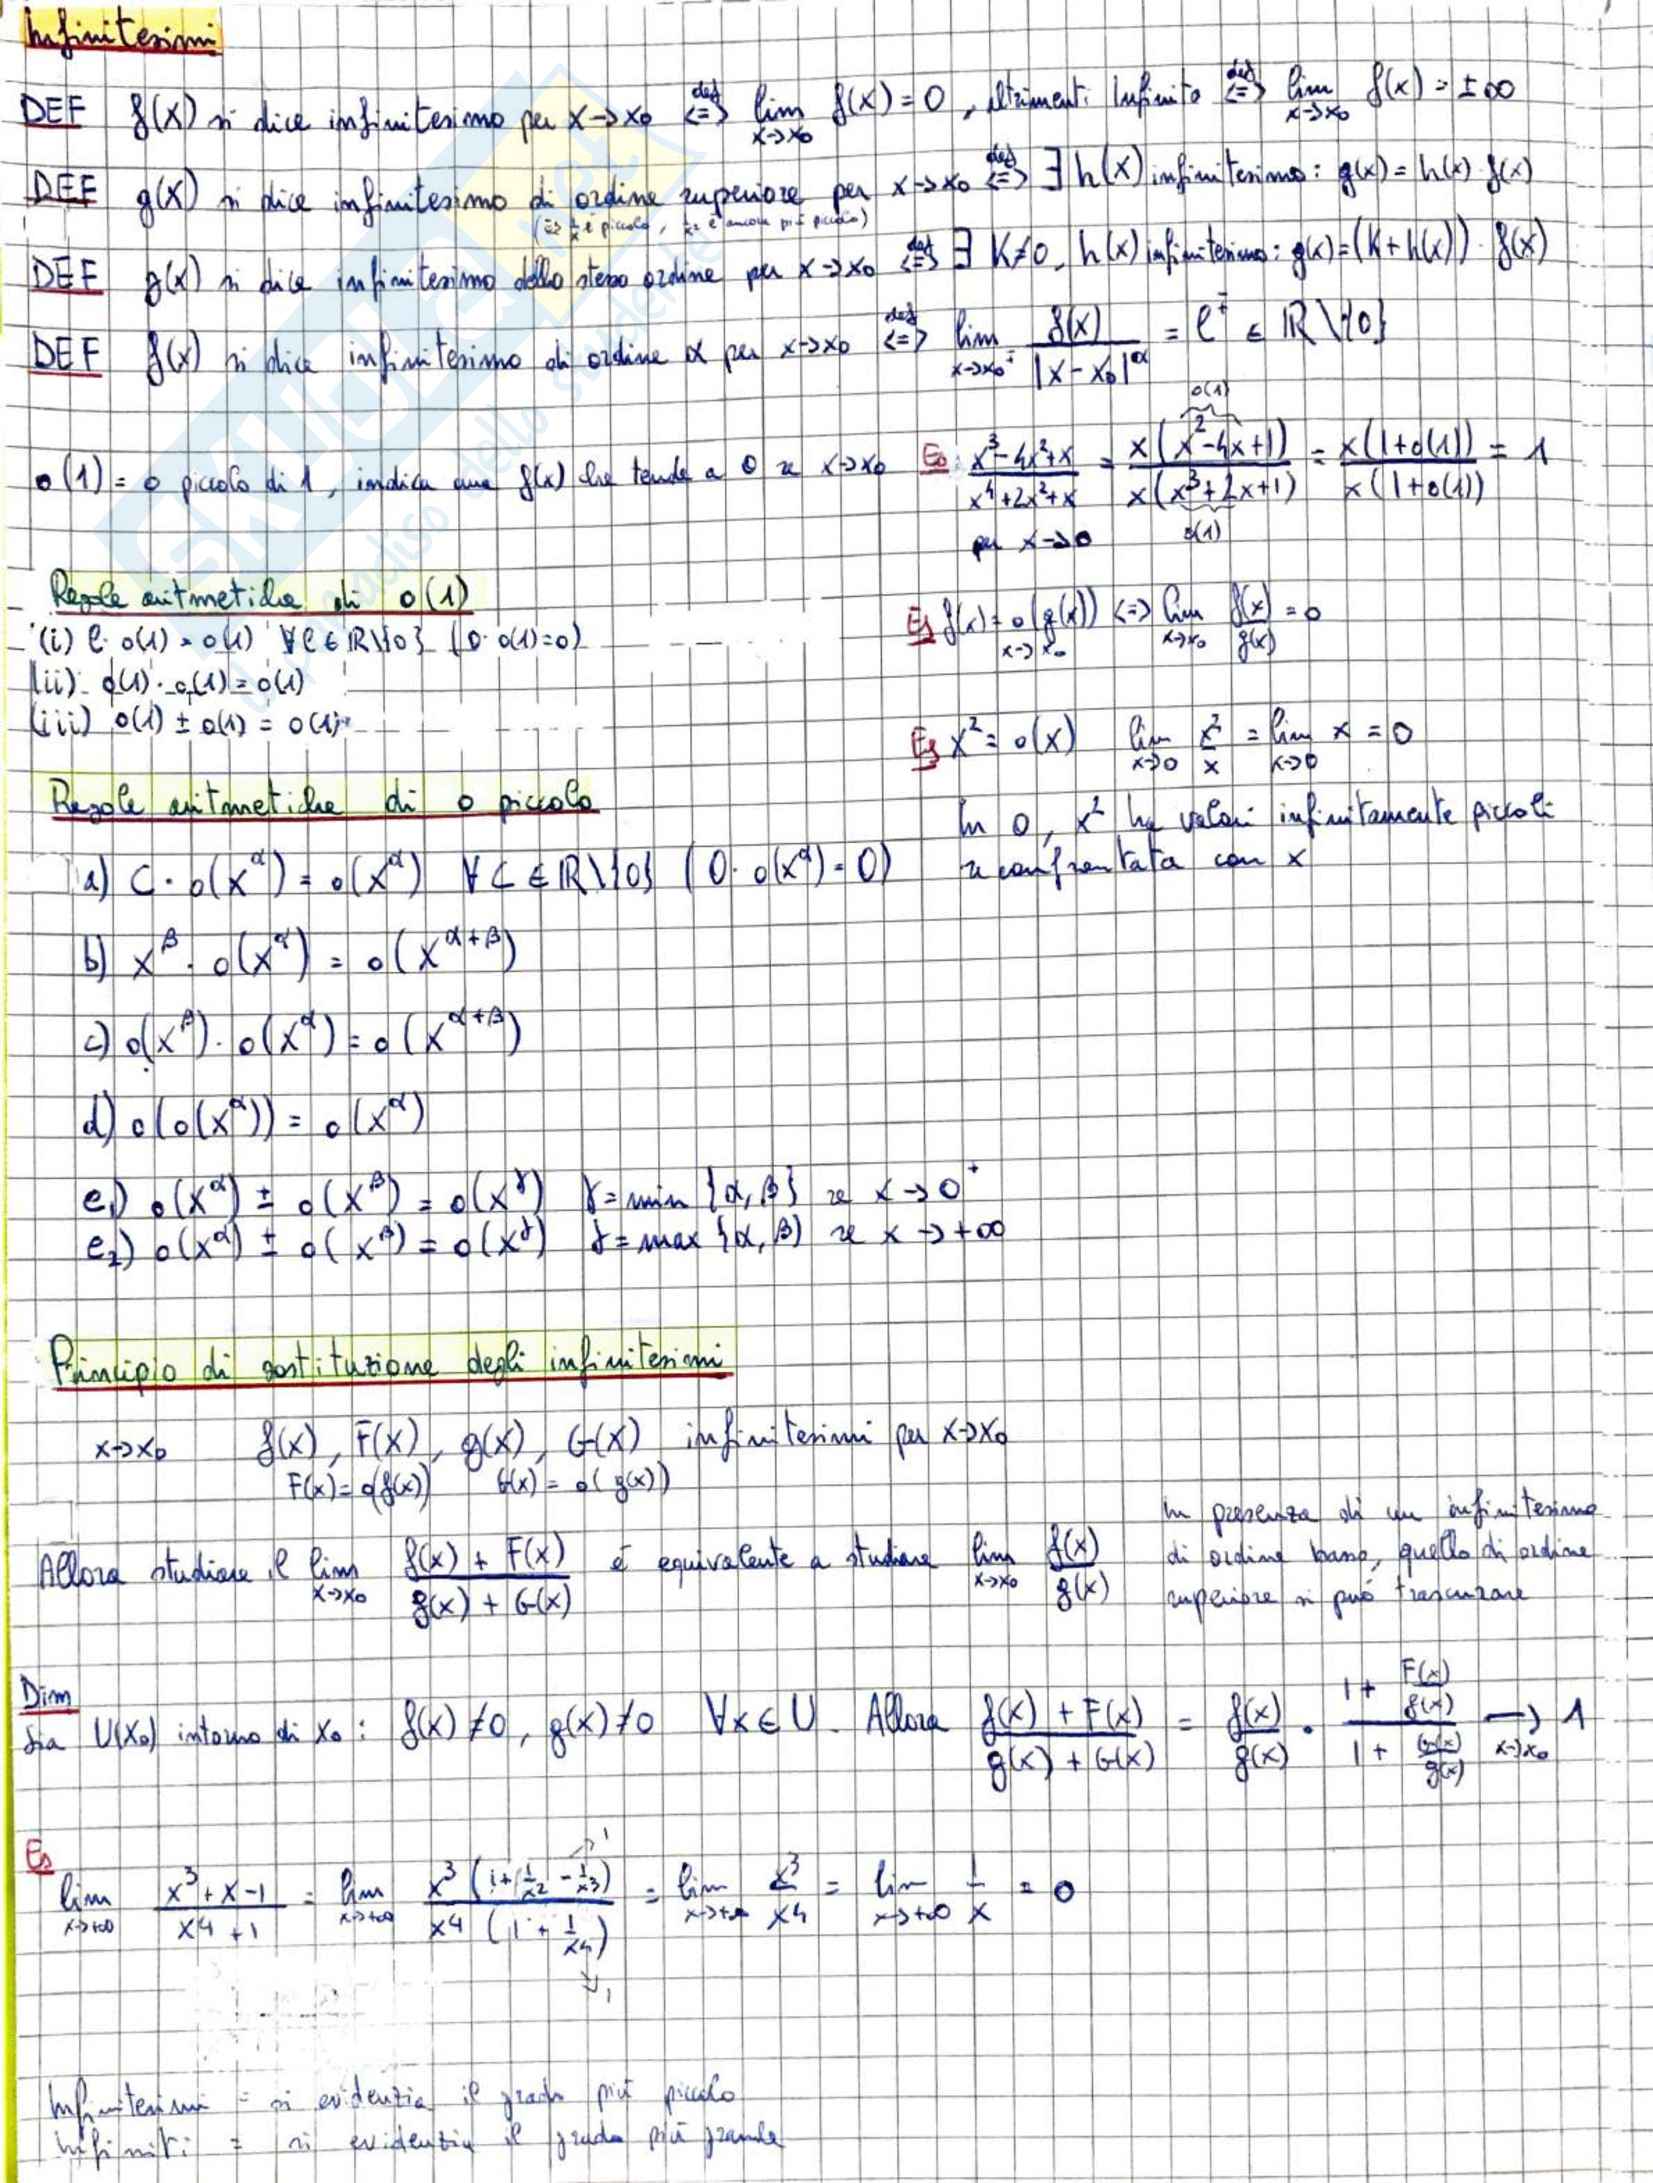 Infinitesimi
DEF f(x) si dice infinitesimo per x→x₀ ⟺(def) lim x→x₀ f(x) = 0, altrimenti Infinito ⟺(def) lim x→x₀ f(x) = ±∞
DEF g(x) si dice infinitesimo di ordine superiore per x→x₀ ⟺(def) ∃ h(x) infinitesimo: g(x) = h(x)·f(x)
(es 1/x è piccolo, 1/x² è ancora più piccolo)
DEF g(x) si dice infinitesimo dello stesso ordine per x→x₀ ⟺(def) ∃ K≠0, h(x) infinitesimo: g(x) = (K+h(x))·f(x)
DEF f(x) si dice infinitesimo di ordine α per x→x₀ ⟺(def) lim x→x₀± f(x)/|x-x₀|^α = ℓ± ∈ ℝ\{0}
o(1) = o piccolo di 1, indica una f(x) che tende a 0 se x→x₀
Es: (x³-4x²+x)/(x⁴+2x²+x) = x(x²-4x+1)/x(x³+2x+1) = x(1+o(1))/x(1+o(1)) = 1
o(1)
o(1)
per x→0
Regole aritmetiche di o(1)
(i) ℓ·o(1) = o(1) ∀ℓ∈ℝ\{0} (0·o(1)=0)
(ii) o(1)·o(1) = o(1)
(iii) o(1) ± o(1) = o(1)
Es f(x) = o(g(x)) x→x₀ ⟺ lim x→x₀ f(x)/g(x) = 0
Es x² = o(x) lim x→0 x²/x = lim x→0 x = 0
In 0, x² ha valori infinitamente piccoli
se confrontata con x
Regole aritmetiche di o piccolo
a) C·o(x^α) = o(x^α) ∀C∈ℝ\{0} (0·o(x^α)=0)
b) x^β·o(x^α) = o(x^(α+β))
c) o(x^β)·o(x^α) = o(x^(α+β))
d) o(o(x^α)) = o(x^α)
e₁) o(x^α) ± o(x^β) = o(x^γ) γ = min {α,β} se x→0⁺
e₂) o(x^α) ± o(x^β) = o(x^γ) γ = max {α,β} se x→+∞
Principio di sostituzione degli infinitesimi
x→x₀ f(x), F(x), g(x), G(x) infinitesimi per x→x₀
F(x) = o(f(x)) G(x) = o(g(x))
Allora studiare il lim x→x₀ (f(x)+F(x))/(g(x)+G(x)) è equivalente a studiare lim x→x₀ f(x)/g(x)
In presenza di un infinitesimo
di ordine basso, quello di ordine
superiore si può trascurare
Dim
Sia U(x₀) intorno di x₀: f(x)≠0, g(x)≠0 ∀x∈U. Allora (f(x)+F(x))/(g(x)+G(x)) = f(x)/g(x) · (1+F(x)/f(x))/(1+G(x)/g(x)) → x→x₀ 1
Es
lim x→+∞ (x³+x-1)/(x⁴+1) = lim x→+∞ x³(1+1/x²-1/x³)/x⁴(1+1/x⁴) = lim x→+∞ x³/x⁴ = lim x→+∞ 1/x = 0
→1
→1
Infinitesimi = si evidenzia il grado più piccolo
Infiniti = si evidenzia il grado più grande